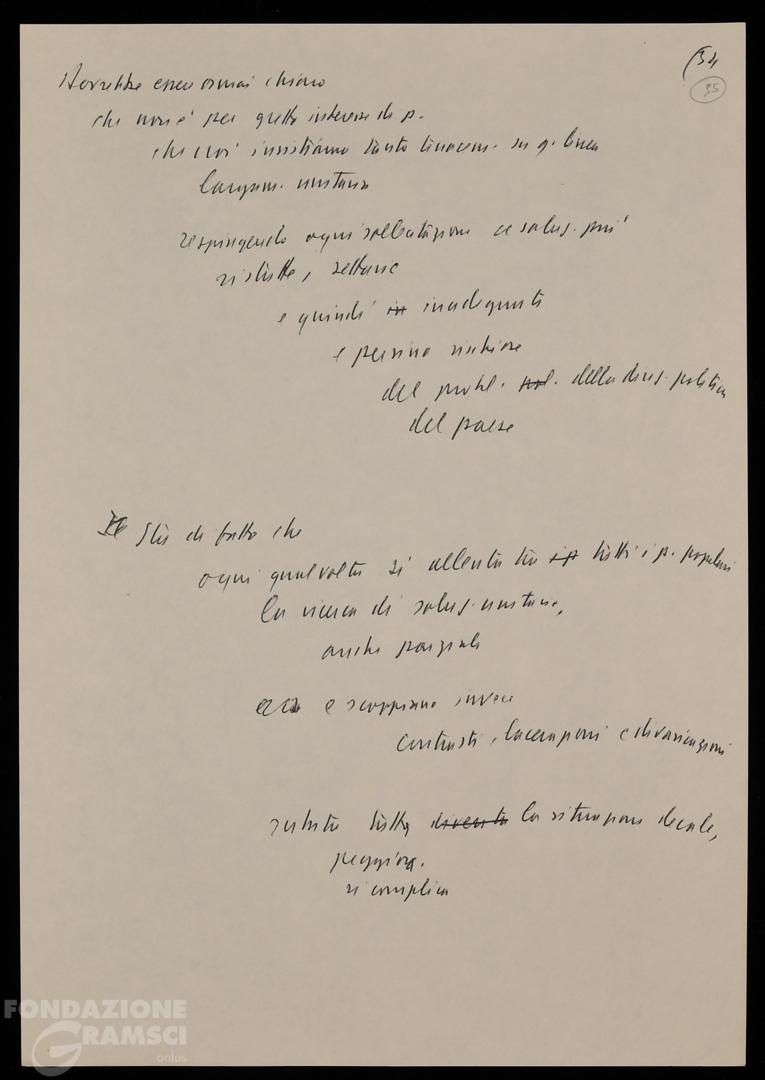 34
35
Dovrebbe essere ormai chiaro
che non è per gretto interesse di p.
che noi insistiamo tanto tenacem. su q. linea
largam. unitaria
respingendo ogni sollecitazione a soluz. più
ristrette, settarie
e quindi in inadeguate
e persino rischiose
del probl. pol. della direz. politica
del paese
Sta di fatto che
ogni qualvolta si allenta tra i p. tutti i p. popolari
la ricerca di soluz. unitarie,
anche parziali
e scoppiano invece
contrasti, lacerazioni e divaricazioni
subito tutta diventa la situazione decade,
peggiora.
si complica
FONDAZIONE
GRAMSCI
onlus